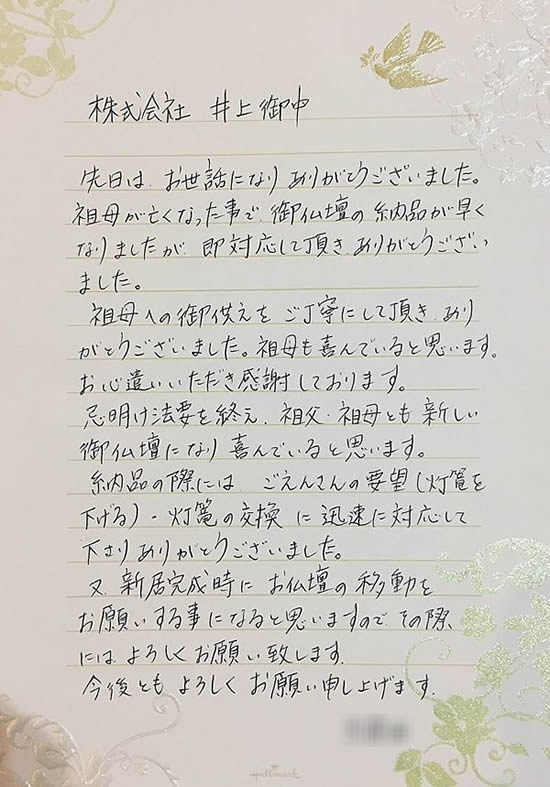 株式会社 井上御中
先日は、お世話になり ありがとうございました。
祖母が亡くなった事で、御仏壇の納品が早く
なりましたが、即対応して頂き、ありがとうござい
ました。
祖母への御供えを ご丁寧にして頂き、あり
がとうございました。祖母も喜んでいると思います。
お心遣いいただき感謝しております。
忌明け法要を終え、祖父・祖母とも新しい
御仏壇になり 喜んでいると思います。
納品の際には、ごえんさんの要望(灯篭を
下げる)・灯篭の交換 に迅速に対応して
下さりありがとうございました。
又、新居完成時に お仏壇の移動を
お願いする事になると思いますので その際
には、よろしくお願い致します。
今後とも よろしく お願い申し上げます。
Hallmark